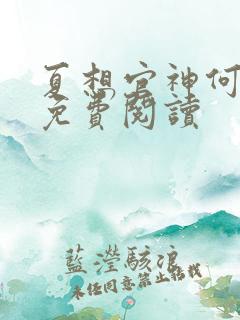 夏想官神何
免費閱讀
藍瀅駭浪
未任同意禁止轉載